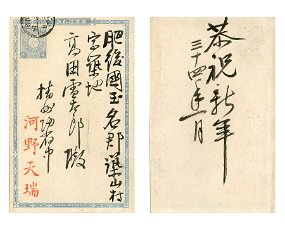 肥後國玉名郡梁山村
字築地
高田雪太郎殿
河野天瑞
恭祝新年
三十四年一月